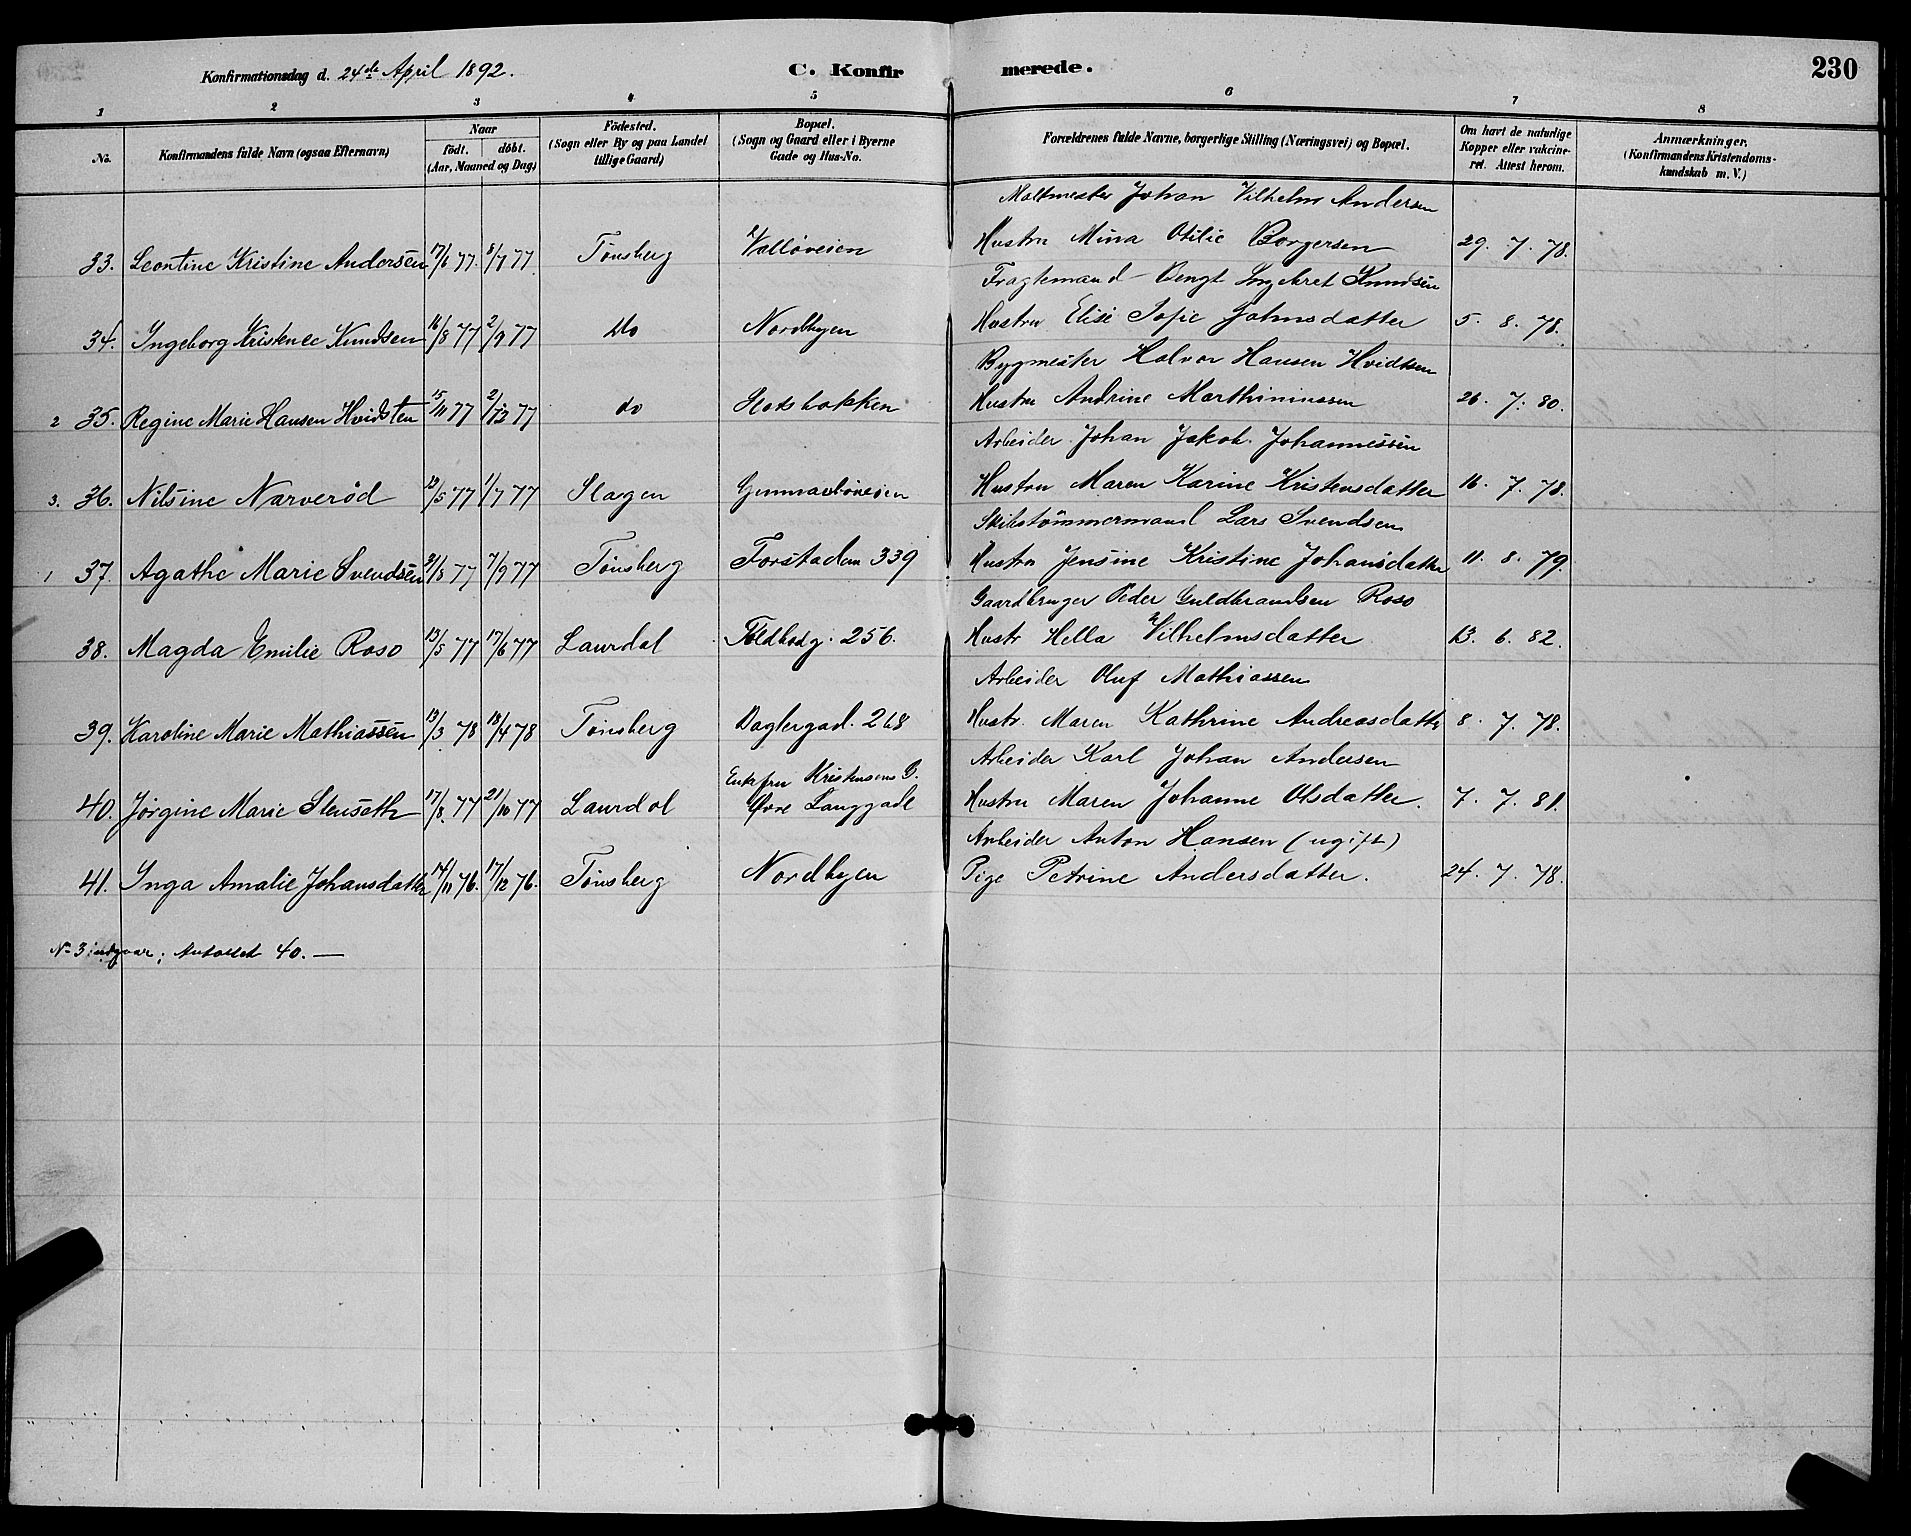 Konfirmationsdag d. 24de April 1892. C. Konfir merede. 230
1 2 3 4 5 6 7 8
No. Konfirmandens fulde Navn (ogsaa Efternavn) Naar födt. döbt. (Aar, Maaned og Dag) Födested. (Sogn eller By og paa Landet tillige Gaard) Bopæl. (Sogn og Gaard eller i Byerne Gade og Hus-No. Forældrenes fulde Navne, borgerlige Stilling (Næringsvei) og Bopæl. Om havt de naturlige Kopper eller vakcineret. Attest herom. Anmærkninger. (Konfirmandens Kristendomskundskab m. V.)
Maltmester Johan Vilhelm Andersen
33. Leontine Kristine Andersen 17/6 77. 8/7 77. Tönsberg Vallöveien Hustru Mina Otilie Borgersen 29. 7. 78.
Fragtemand Bengt Knudsen
34. Ingeborg Kristence Knudsen 16/8 77 2/9 77 do Nordbyen Hustru Elise Sofie Johnsdatter 5. 8. 78.
Bygmester Halvor Hansen Hvidsten
2 35. Regine Marie Hansen Hvidsten 15/11 77 2/12 77 do Stadsbakken Hustru Andrine Marthiniussen 26. 7. 80.
Arbeider Johan Jakob Johannessen
3. 36. Nilsine Narveröd 12/5 77 1/7 77 Slagen Hustru Maren Karine Kristensdatter 16. 7. 78.
Skibstömmermand Lars Svendsen
1 37. Agathe Marie Svendsen 31/8 77 7/9 77 Tönsberg Forstaden 339 Hustru Jensine Kristine Johansdatter 11. 8. 79.
Gaardbruger Peder Guldbrandsen Roso
38. Magda Emilie Roso 13/5 77 17/6 77 Laurdal Toldbodg. 256. Hustr Hella Vilhelmsdatter 13. 6. 82.
Arbeider Oluf Mathiassen
39. Karoline Marie Mathiassen 13/3 78 18/4 78 Tönsberg Baglergad. 268 Hustr. Maren Kathrine Andreasdatter 8. 7. 78.
Arbeider Karl Johan Andersen
Enkefru Kristensens G.
40. Jörgine Marie Stenseth 17/8 77 21/10 77 Laurdal Övre Langgade Hustru Maren Johanne Olsdatter. 7. 7. 81.
Arbeider Anton Hansen (ugift)
41. Inga Amalie Johansdatter 14/11 76. 17/12 76. Tönsberg Nordbyen Pige Petrine Andersdatter. 24. 7. 78.
No 3 udgaar; Antallet 40. —